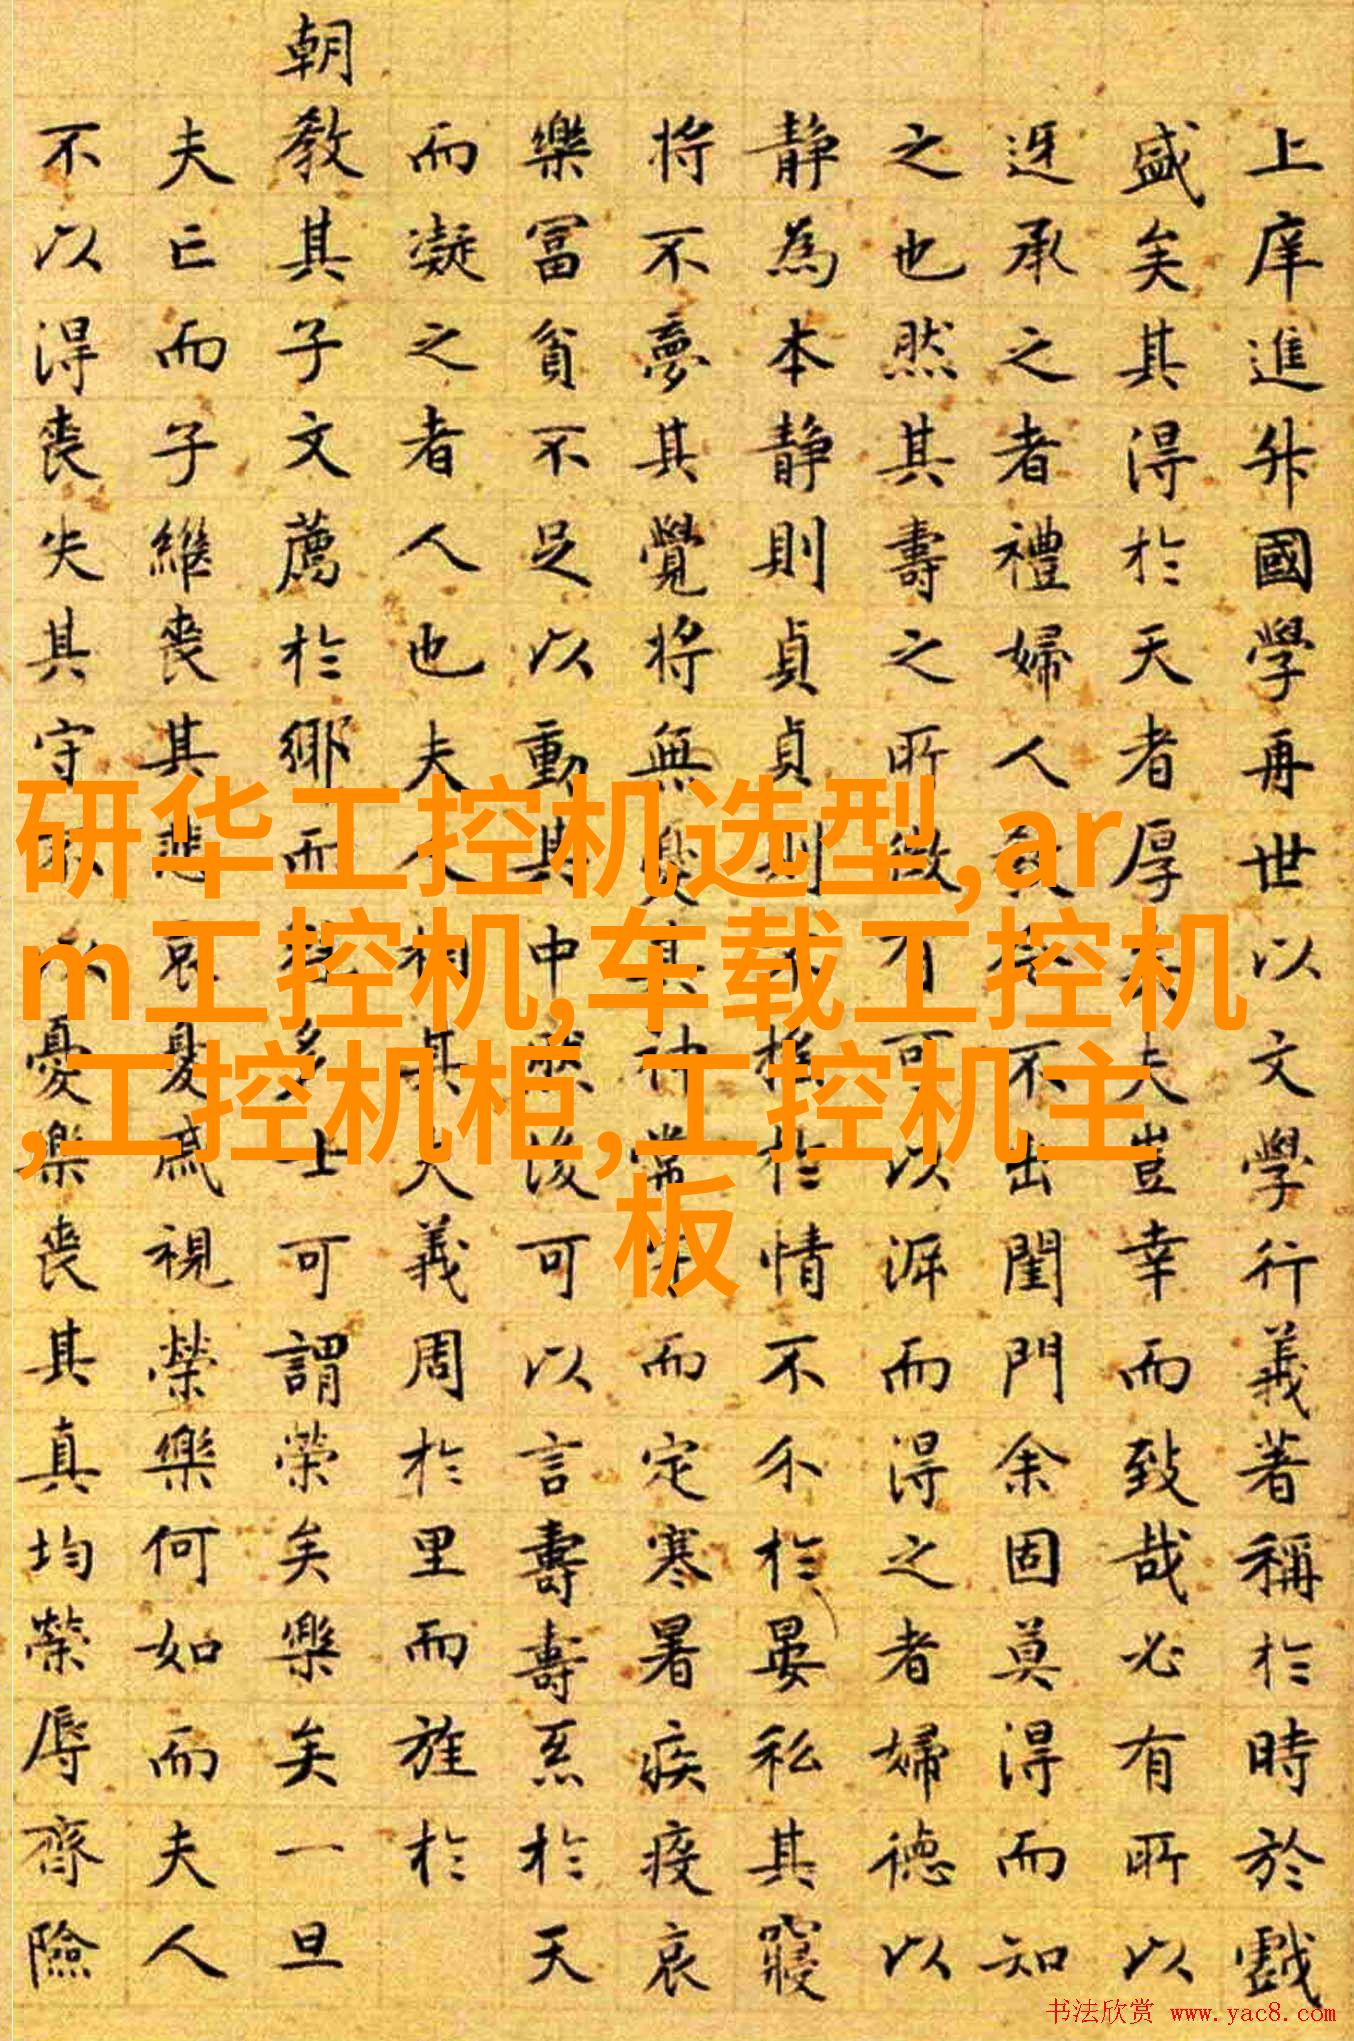 上庠進升國學再世以文學行義著稱於時於戲
盛矣其得於天者厚夫豈幸而致哉必有所以
迓承之者禮婦人不出閨門余固莫得而知
之也然其壽之所有可以得之者婦德以
静為本静則貞貞則不於情不尒於晏私其寢
将不夢其覺将無與其神常而定寒暑疾疫哀
樂冨貧不足以動其中然後可以言壽壽系於天
而凝之者人也夫人相其夫義周於里而旌於
朝教其子文薦於鄉而多士可謂荣矣樂矣一旦
夫亡而子継喪其悲哀憂戚視榮樂何如而夫人
不以得喪失其守不以憂樂喪其真均榮辱齊險
研华工控机选型,ar
m工控机,车载工控机
,工控机柜,工控机主
板
书法欣赏 www.yac8.com